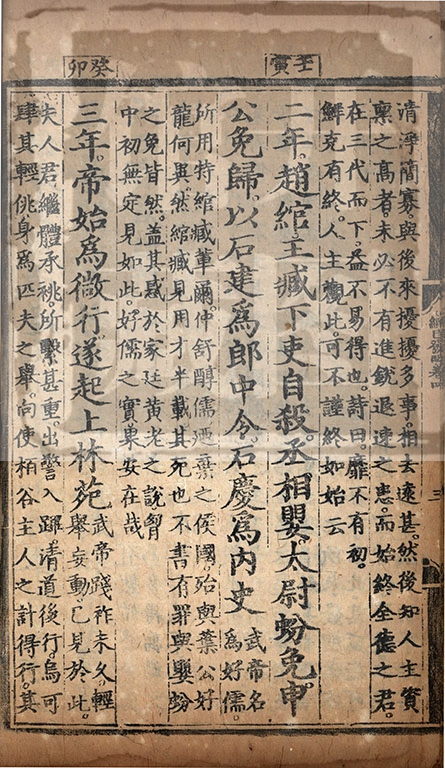 壬寅
清淨簡寡。與後來擾擾多事。相去遠甚。然後知人主資
稟之高者。未必不有進銳退速之患。而始終全德之君。
在三代而下。益不易得也。詩曰。靡不有初。
鮮克有終。人主觀此。可不謹終如始云
二年。趙綰王臧下吏自殺。丞相嬰。太尉蚡免。申
公免歸。以石建爲郎中令。石慶爲內史
武帝名
爲好儒。
所用特綰臧軰爾。仲舒醇儒。棄之侯國。殆與葉公好
龍何異。然綰臧見用才半載。其死也不書有罪。與嬰蚡
之免皆然。盖其惑於家廷黄老之說。胷
中初無定見如此。好儒之實果安在哉
癸卯
三年。帝始爲微行。遂起上林苑
武帝踐祚未久。輕
舉妄動。已見於此。
夫人君繼體承祧。所繫甚重。出警入蹕。清道後行。烏可
肆其輕佻。身爲匹夫之舉。向使栢谷主人之計得行。其